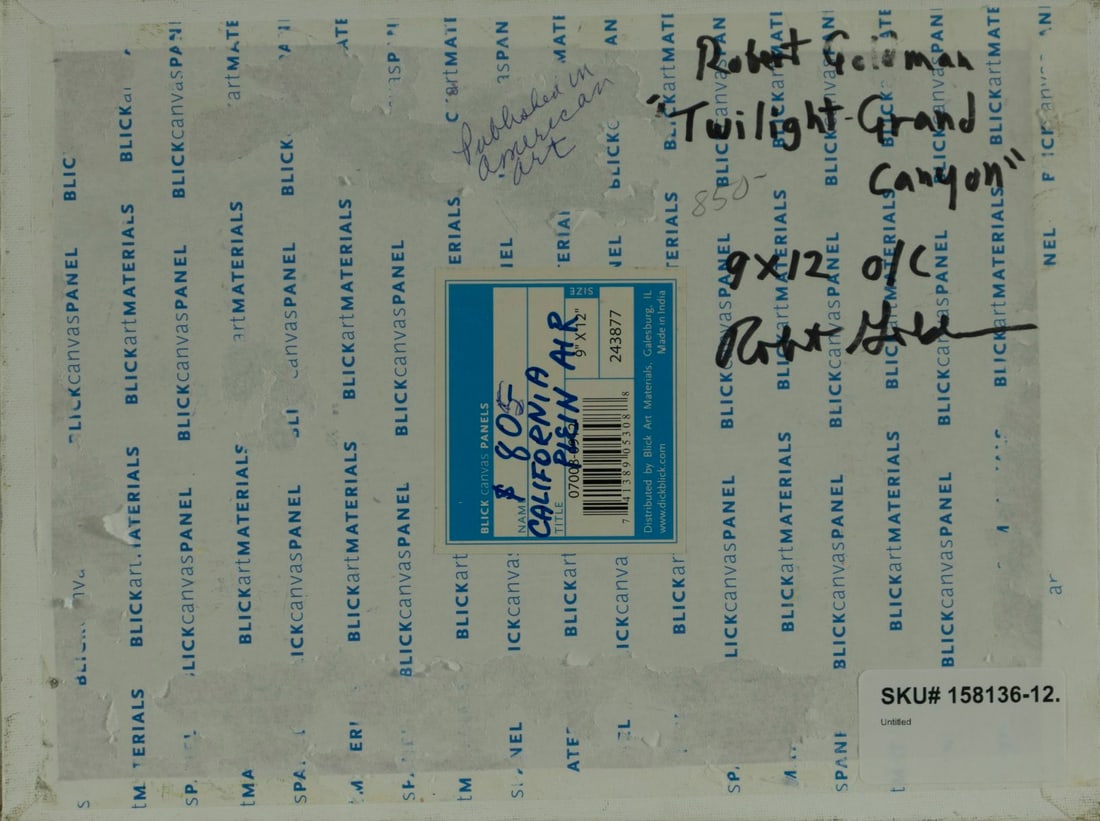 Robert Goldman
"Twilight-Grand
Canyon"
850-
9x12 O/C
Robert Goldman
Published in
American
Art
BLICK canvas PANELS
$ 805-
NAME
CALIFORNIA
TITLE
PLEIN AIR
SIZE
9" X 12"
243877
7 41389 05308 8
Distributed by Blick Art Materials, Galesburg, IL
www.dickblick.com
Made in India
SKU# 158136-12.
Untitled
BLICKartMATERIALS
BLICKcanvasPANEL